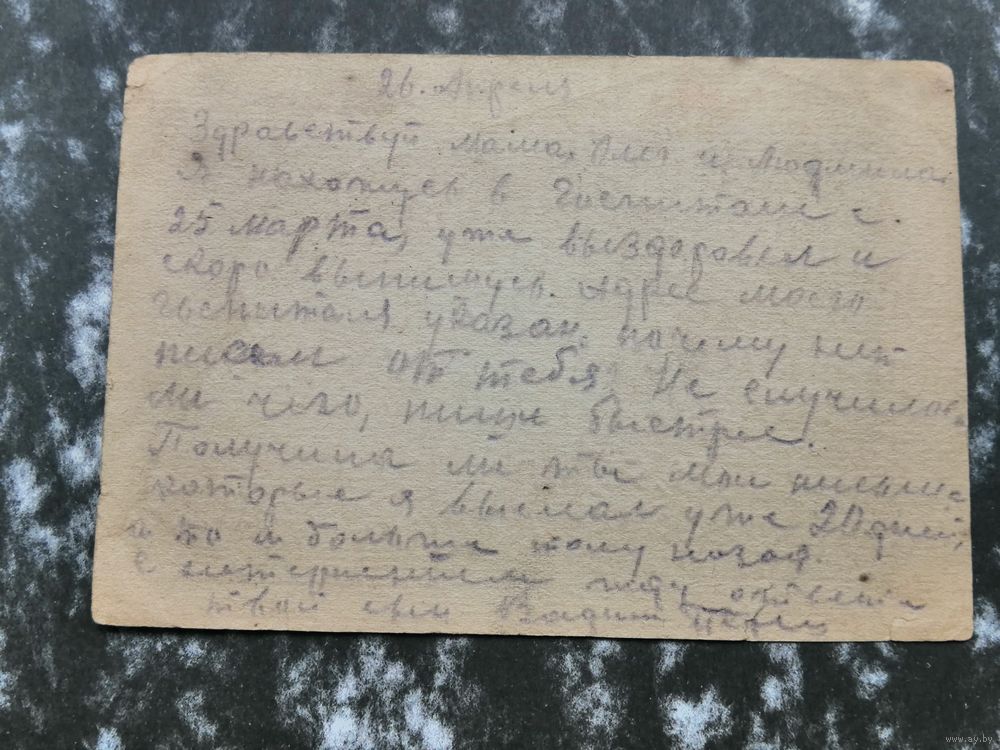 26. Апреля
Здравствуй Мама, Олег и Людмила.
Я нахожусь в Госпитале с.
25 марта, уже выздоровел и
скоро выпишусь. Адрес моего
госпиталя указан. почему нет
писем от тебя? Не случилось
ли чего, пиши быстрее.
Получила ли ты мои письма
которые я выслал уже 20 дней,
а то и больше тому назад.
С нетерпением жду ответа
твой сын Вадим
www.ay.by